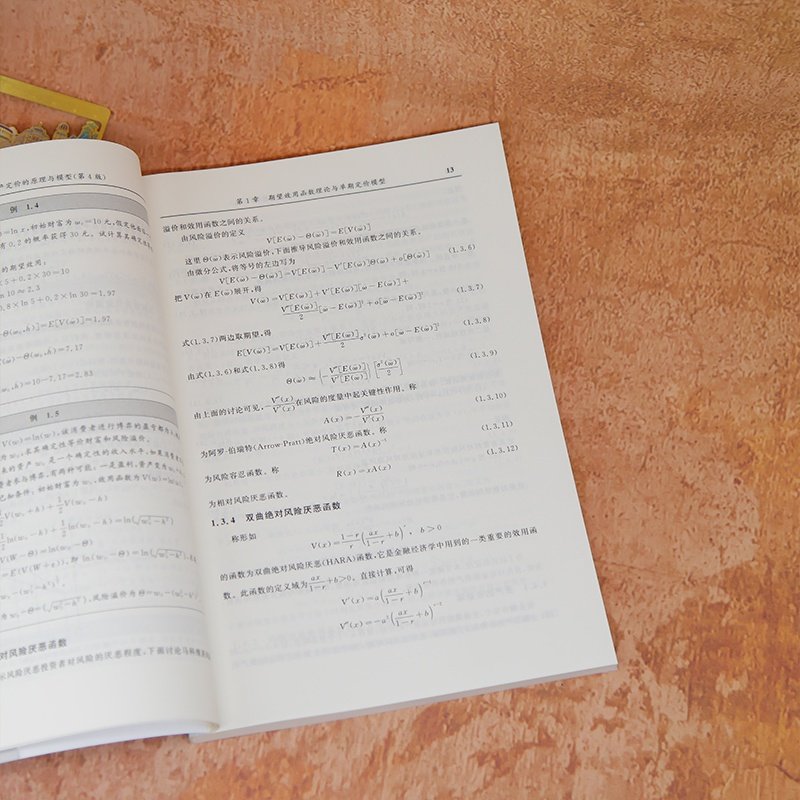 定价的原理与模型(第 4 版)
例 1.4
)=ln x,初始财富为 w₀=10 元,假定他
有 0.2 的概率获得 30 元。试计算其确定
的期望效用:
5+0.2×30=10
ln 10≈2.3
0.8×ln 5+0.2×ln 30=1.97
-Θ(w₀,h)]=E[V(w̃)]=1.97
(w̃)-Θ(w₀,h)=7.17
(w₀,h)=10-7.17=2.83
例 1.5
V(w)=ln(w),该消费者进行博弈的盈亏都为
为 w₀,求其确定性等价财富和风险溢价。
ln(w₀+h)+1/2 ln(w₀-h)=ln(√(w₀²-h²))
对风险厌恶函数
示风险厌恶投资者对风险的厌恶程度,下面讨论马科维茨
第 1 章 期望效用函数理论与单期定价模型 13
溢价和效用函数之间的关系。
由风险溢价的定义
V[E(w̃)-Θ(w̃)]=E[V(w̃)]
这里 Θ(w̃)表示风险溢价,下面推导风险溢价和效用函数之间的关系。
由微分公式,将等号的左边写为
V[E(w̃)-Θ(w̃)]=V[E(w̃)]-V′[E(w̃)]Θ(w̃)+o[Θ(w̃)] (1.3.6)
把 V(w̃)在 E(w̃)展开,得
V(w̃)=V[E(w̃)]+V′[E(w̃)][w̃-E(w̃)]+
V″[E(w̃)]/2 [w̃-E(w̃)]²+o[w̃-E(w̃)]² (1.3.7)
式(1.3.7)两边取期望,得
E[V(w̃)]=V[E(w̃)]+V″[E(w̃)]/2 σ²(w̃)+o[w̃-E(w̃)]² (1.3.8)
由式(1.3.6)和式(1.3.8)得
Θ(w̃)≈(-V″[E(w̃)]/V′[E(w̃)])[σ²(w̃)/2] (1.3.9)
由上面的讨论可见,-V″(x)/V′(x)在风险的度量中起关键性作用。称
A(x)=-V″(x)/V′(x) (1.3.10)
为阿罗-伯瑞特(Arrow-Pratt)绝对风险厌恶函数。称
T(x)=A(x)⁻¹ (1.3.11)
为风险容忍函数。称
R(x)=xA(x) (1.3.12)
为相对风险厌恶函数。
1.3.4 双曲绝对风险厌恶函数
称形如
V(x)=(1-r)/r (ax/(1-r)+b)ʳ, b>0
的函数为双曲绝对风险厌恶(HARA)函数,它是金融经济学中用到的一类重要的效用函
数。此函数的定义域为 ax/(1-r)+b>0。直接计算,可得
V′(x)=a(ax/(1-r)+b)ʳ⁻¹
V″(x)=-a²(ax/(1-r)+b)ʳ⁻²